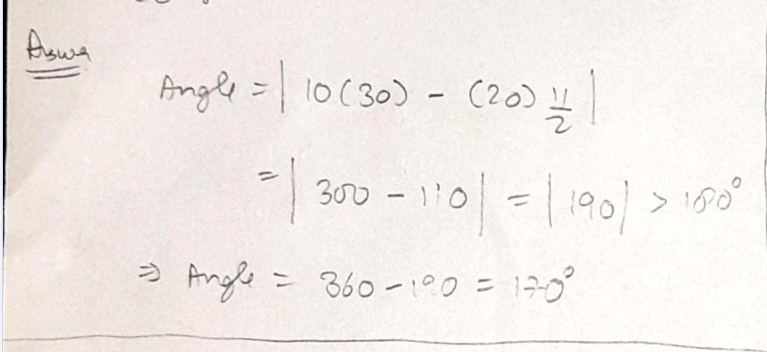 Answer
Angle = | 10(30) - (20) 11/2 |
= | 300 - 110 | = | 190 | > 180°
⇒ Angle = 360 - 190 = 170°